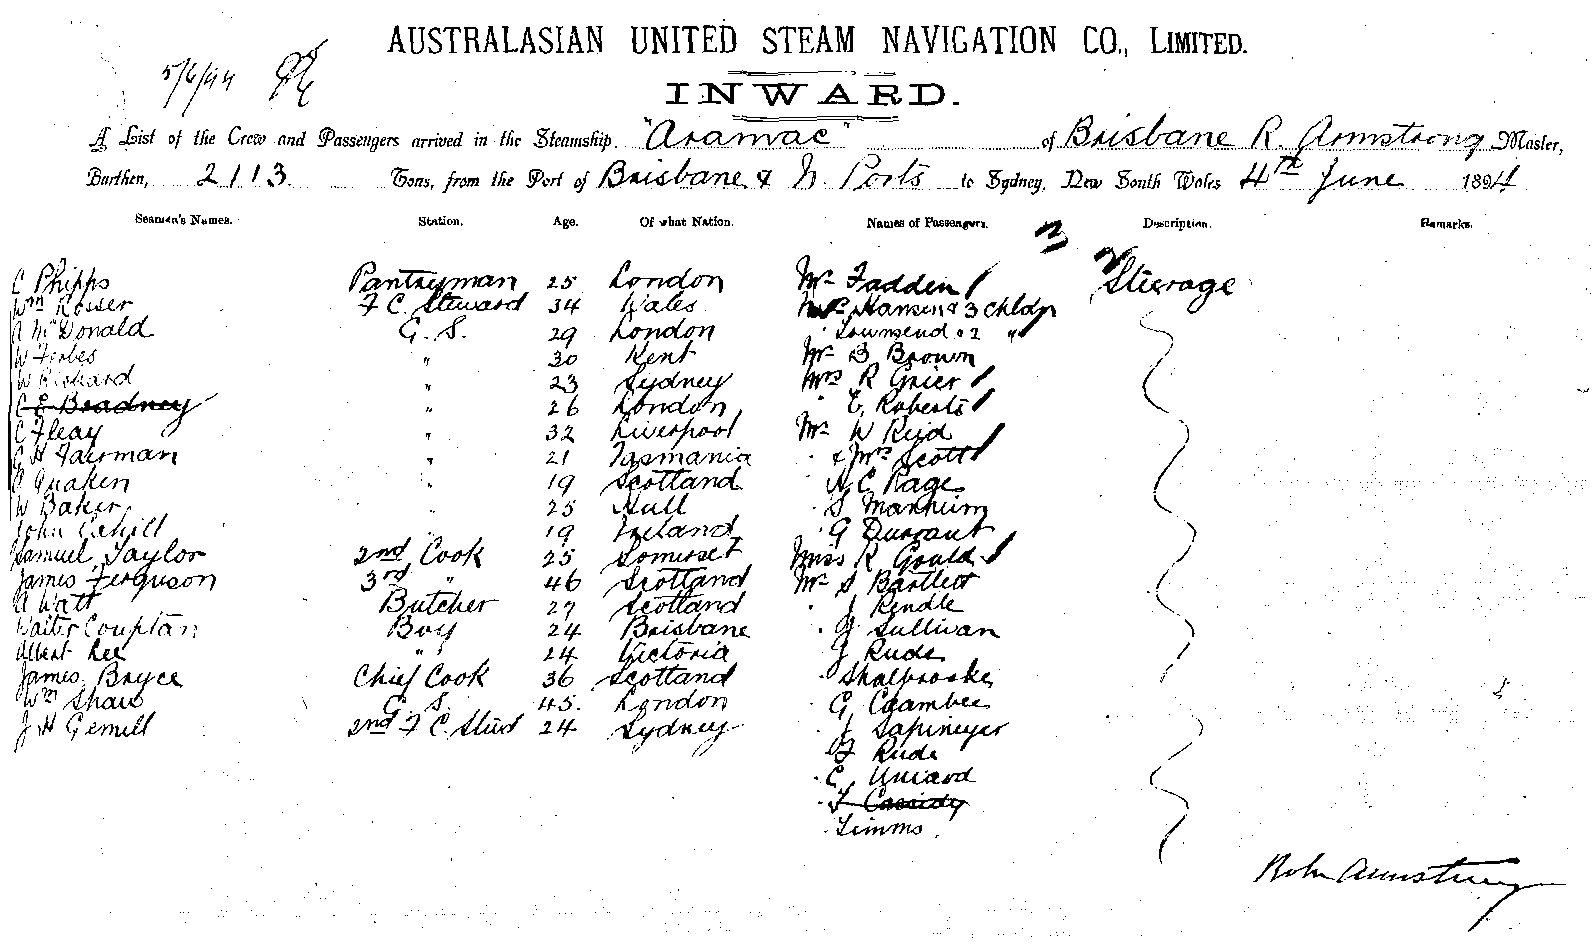 AUSTRALASIAN UNITED STEAM NAVIGATION CO., LIMITED.
5/6/94
INWARD.
A List of the Crew and Passengers arrived in the Steamship "Aramac" of Brisbane R. Armstrong Master,
Burthen, 2113 Tons, from the Port of Brisbane & N Ports to Sydney, New South Wales 4th June 1894
Seamen's Names. Station. Age. Of what Nation. Names of Passengers. Description. Remarks.
C Phipps Pantryman 25 London Mr Fadden Steerage
Wm Rosser F C Steward 34 Wales Hansen & 3 chldn
A McDonald G. S. 29 London Townsend " 2 "
W Forbes " 30 Kent Mr B Brown
W Rishard " 23 Sydney Mrs R Grier
C E Bradney " 26 London " E Roberts
C Fleay " 32 Liverpool Mr W Reid
G H Fairman " 21 Tasmania " & Mrs Scott
C Quaken " 19 Scotland A C Page
W Baker " 25 Hull " S Manheim
John Cahill 19 Ireland " G Durrant
Samuel Taylor 2nd Cook 25 Somerset Miss R Gould
James Ferguson 3rd " 46 Scotland Mr S Bartlett
A Watt Butcher 27 Scotland " J Rendle
Walter Couptan Boy 24 Brisbane " J Sullivan
Albert Lee " " 24 Victoria " J Rude
James Bryce Chief Cook 36 Scotland " Shalbrooke
Wm Shaw G. S. 45. London " G Coambee
J H Gemell 2nd F C Stwd 24 Sydney " J Sapineyer
" F Rude
" C Uniard
" F Cassidy
" Timms
Robn Armstrong